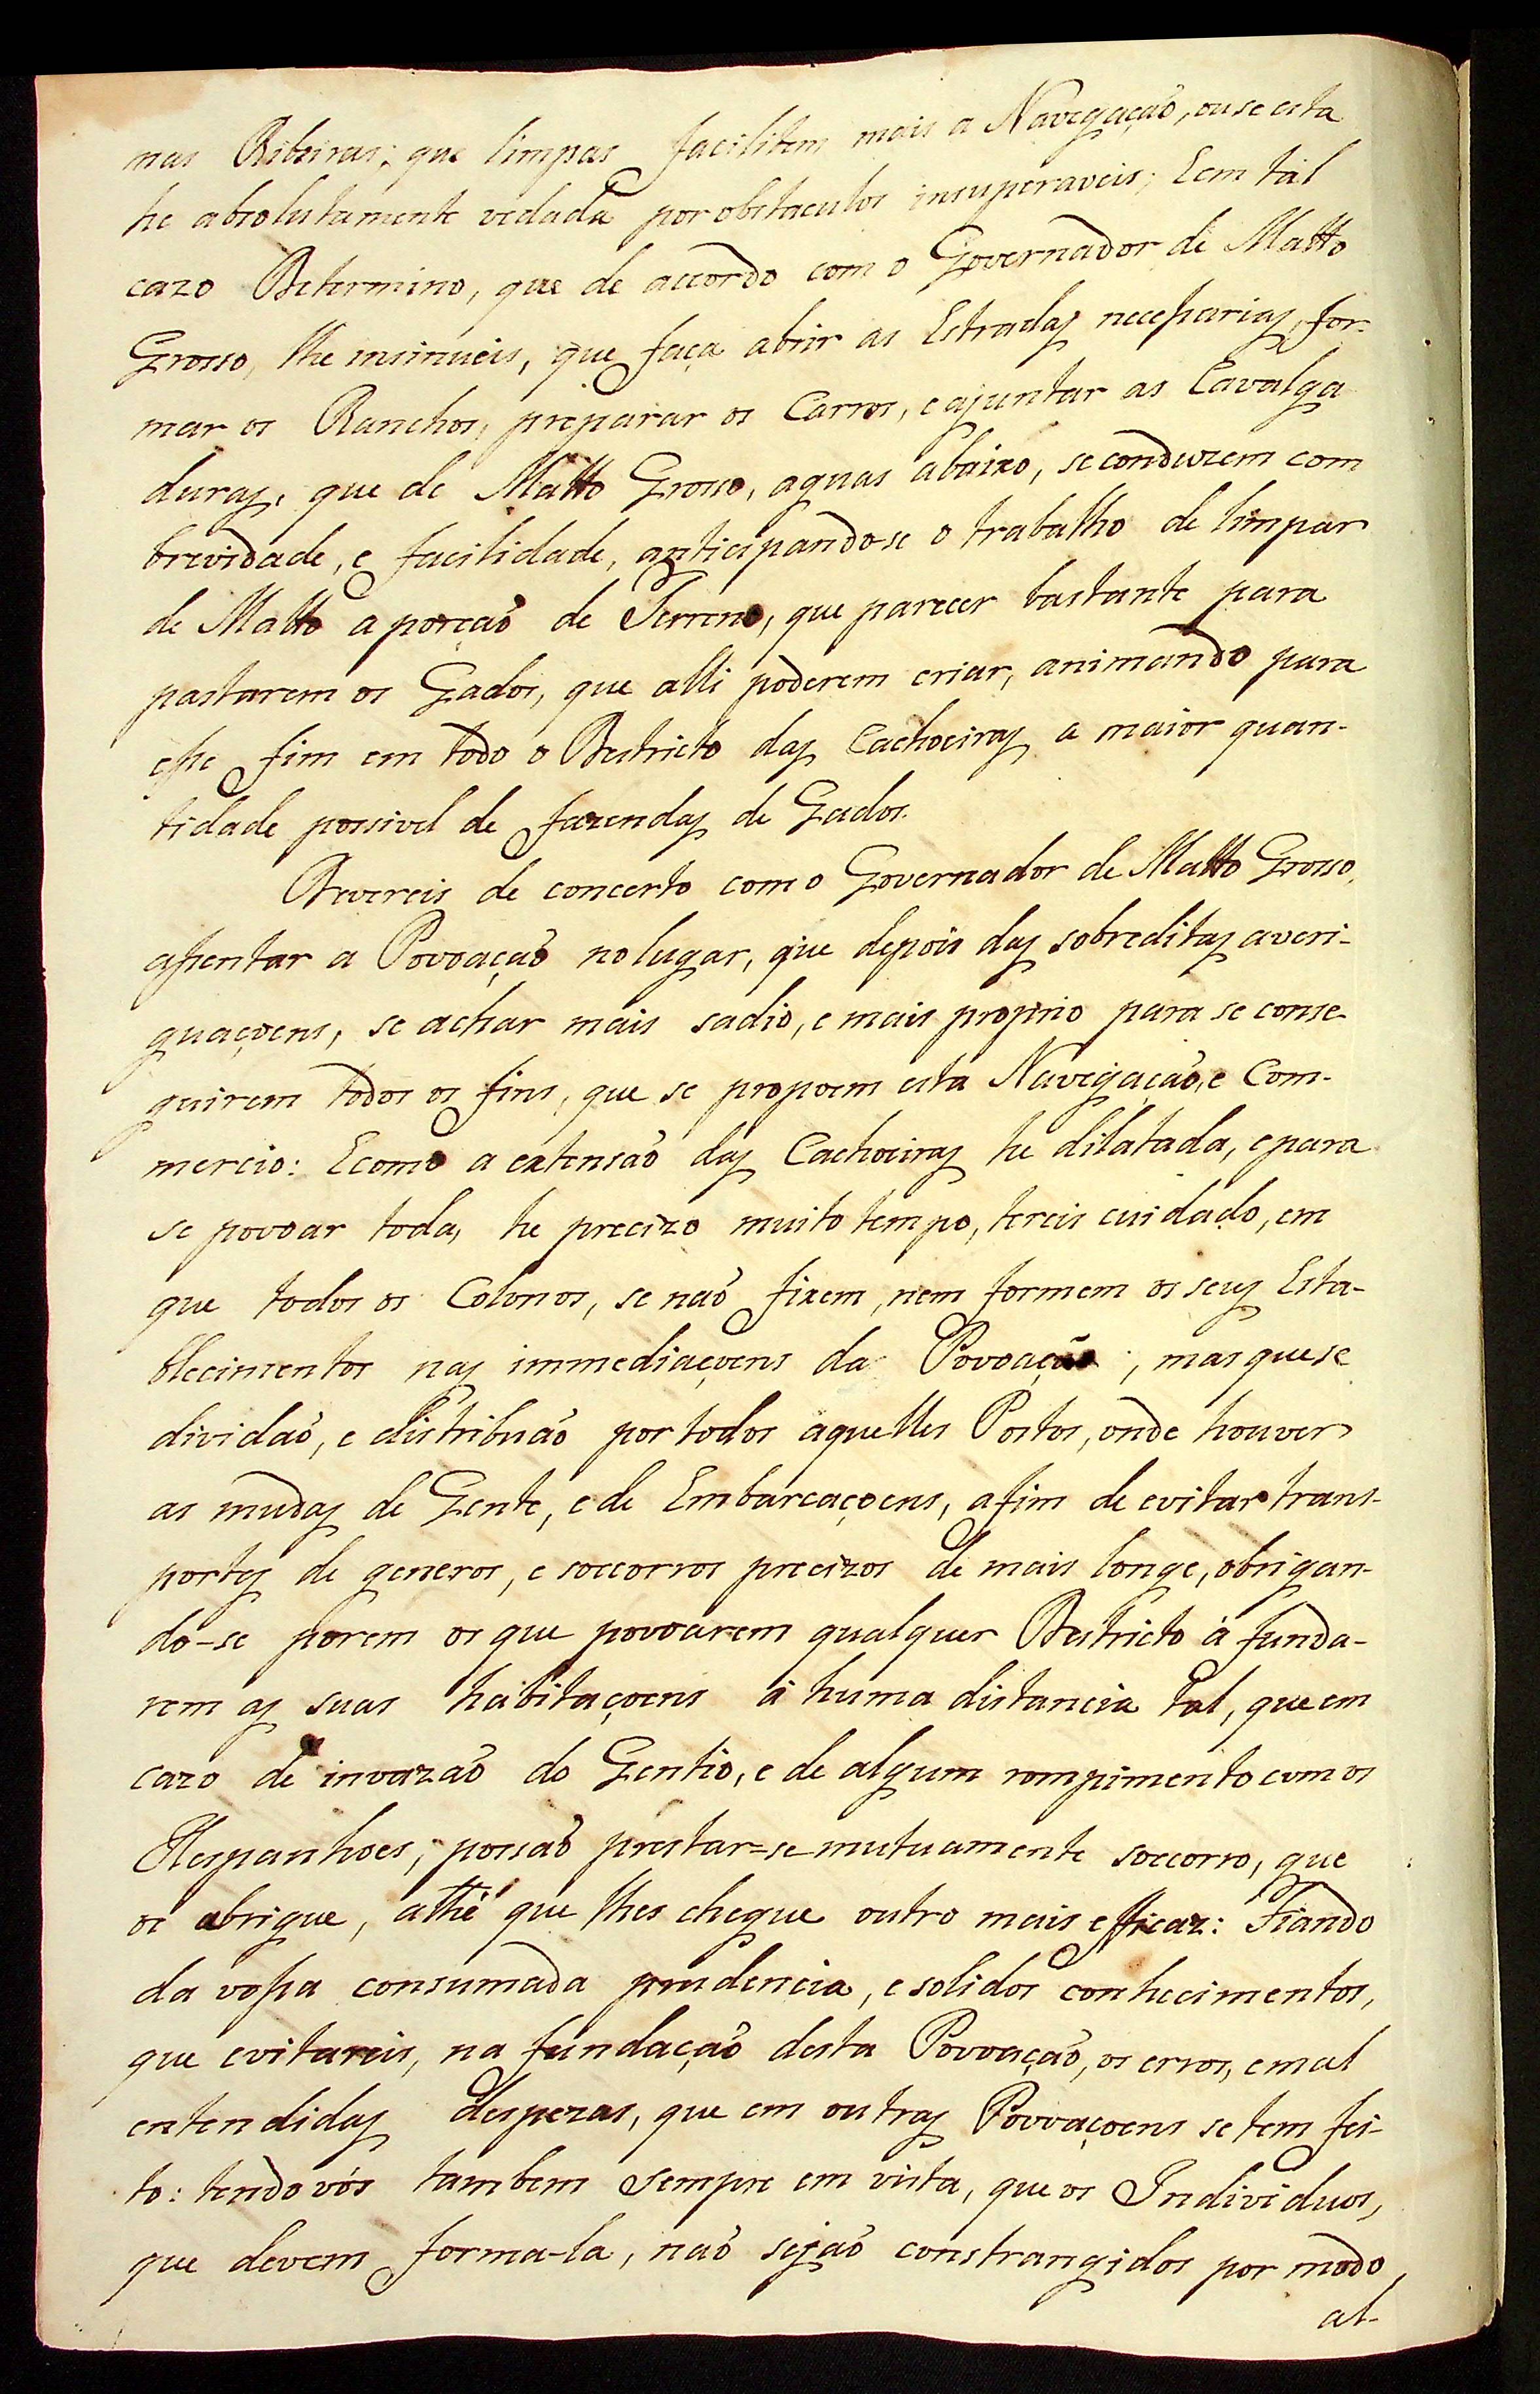 nas Ribeiras; que limpas facilitem mais a Navegação, ou se esta
he absolutamente vedada por obstaculos insuperaveis; E em tál
cazo Determino, que de accordo com o Governador de Matto
Grosso, lhe insinueis, que faça abrir as Estradas necessarias, for-
mar os Ranchos, preparar os Carros, e ajuntar as Cavalga
duras, que de Matto Grosso, aguas abaixo, se conduzem com
brevidade, e facilidade, anticipando-se o trabalho de limpar
de Matto a porção de Terreno, que parecer bastante para
pastarem os Gados, que alli poderem criar, animando para
esse fim em todo o Destricto das Cachoeiras a maior quan-
tidade possivel de fazendas de Gados.
Devereis de concerto com o Governador de Matto Grosso,
assentar a Povoação no lugar, que depois das sobreditas averi-
guaçoens, se achar mais sadio, e mais proprio para se conse-
guirem todos os fins, que se propoem esta Navegação, e Com-
mercio: E como a extensão das Cachoeiras he dilatada, e para
se povoar toda, he precizo muito tempo, tereis cuidado, em
que todos os Colonos, se não fixem, nem formem os seus Esta-
blecimentos nas immediaçoens da Povoação, mas que se
dividão, e distribuão por todos aquelles Postos, onde houver
as mudas de Gente, e de Embarcaçoens, afim de evitar trans-
portes de generos, e soccorros precizos de mais longe, obrigan-
do-se porem os que povoarem qualquer Destricto á funda-
rem as suas habitaçoens á huma distancia tal, que em
cazo de invazão do Gentio, e de algum rompimento com os
Hespanhoes, possão prestar-se mutuamente soccorro, que
os abrigue, athé que lhes chegue outro mais efficaz: Fiando
da vossa consumada prudencia, e solidos conhecimentos,
que evitareis, na fundação desta Povoação, os erros, e mal
entendidas despezas, que em outras Povoaçoens se tem fei-
to: tendo vós tambem sempre em vista, que os Individuos,
que devem forma-la, não sejão constrangidos por modo
al-